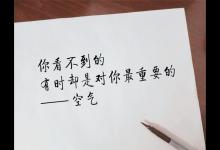 你看不到的
有时却是对你最重要的
——空气